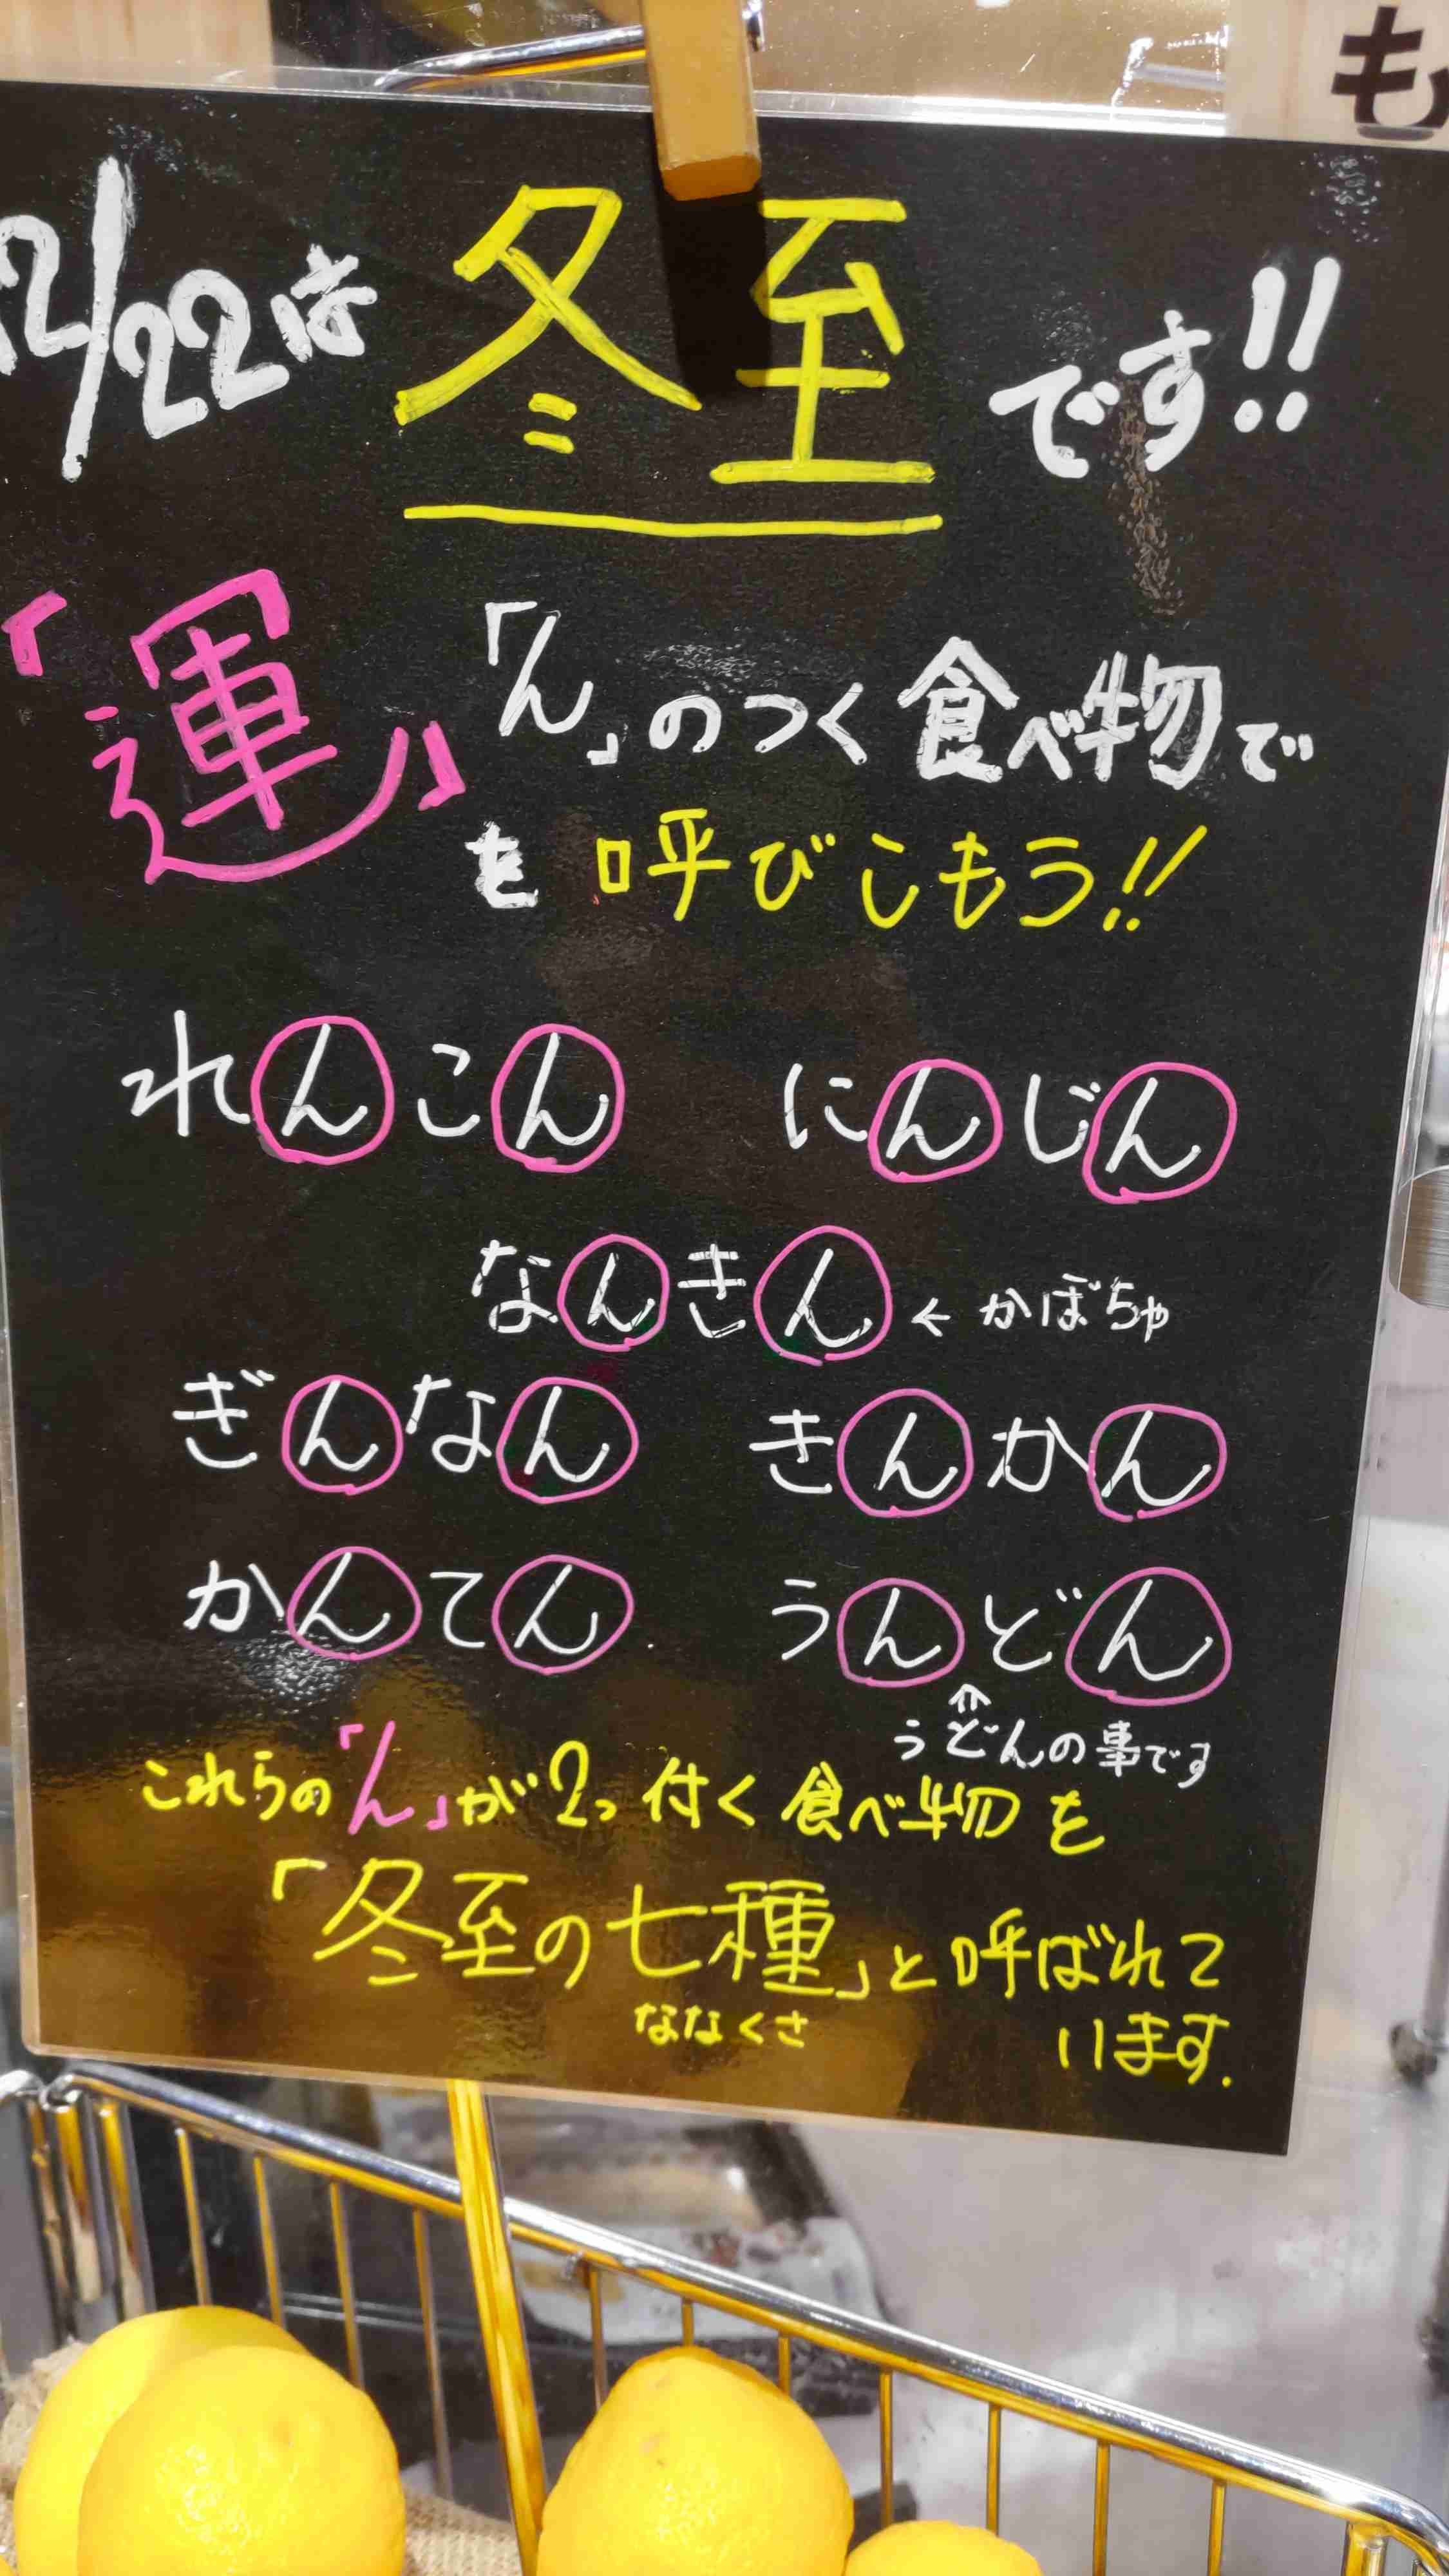 も
12/22は 冬至 です!!
「ん」のつく食べ物で
「運」を呼びこもう!!
れんこん にんじん
なんきん ← かぼちゃ
ぎんなん きんかん
かんてん うんどん
⇑
うどんの事です
これらの「ん」が2つ付く食べ物を
「冬至の七種」と呼ばれて
ななくさ
います.